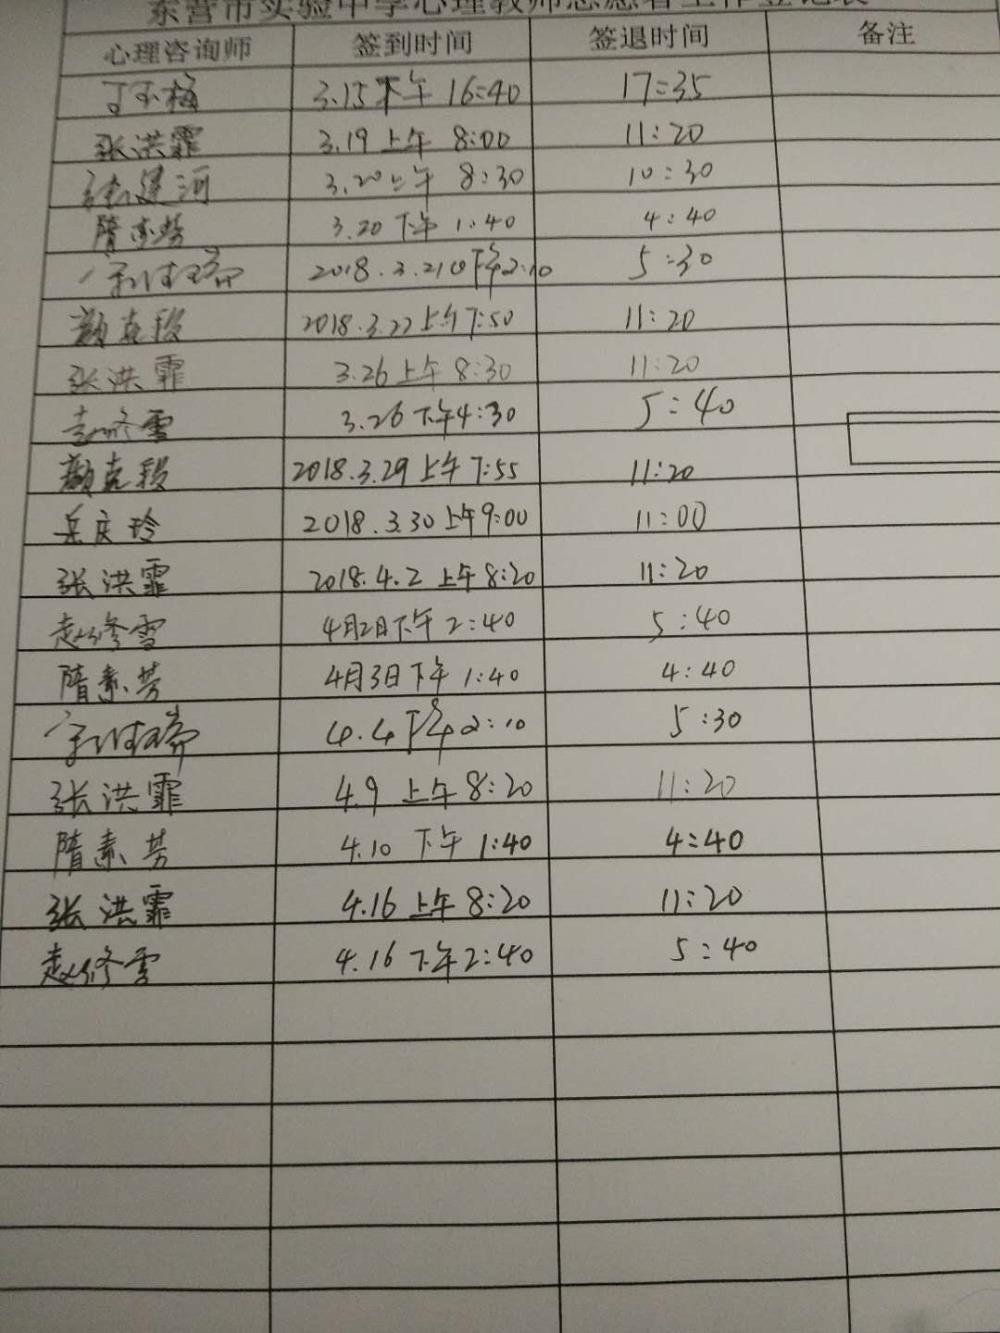 东营市实验中学心理教师志愿者工作登记表
心理咨询师 签到时间 签退时间 备注
丁玉梅 3.15下午 16:40 17:35
张洪霏 3.19上午 8:00 11:20
建河 3.20上午 8:30 10:30
隋素芳 3.20下午 1:40 4:40
2018.3.21 下午2:10 5:30
颜克段 2018.3.22上午7:50 11:20
张洪霏 3.26上午 8:30 11:20
赵修雪 3.26下午4:30 5:40
颜克段 2018.3.29上午7:55 11:20
岳庆玲 2018.3.30上午9:00 11:00
张洪霏 2018.4.2 上午8:20 11:20
赵修雪 4月2日下午 2:40 5:40
隋素芳 4月3日下午 1:40 4:40
4.4下午2:10 5:30
张洪霏 4.9 上午8:20 11:20
隋素芳 4.10 下午 1:40 4:40
张洪霏 4.16 上午8:20 11:20
赵修雪 4.16 下午2:40 5:40